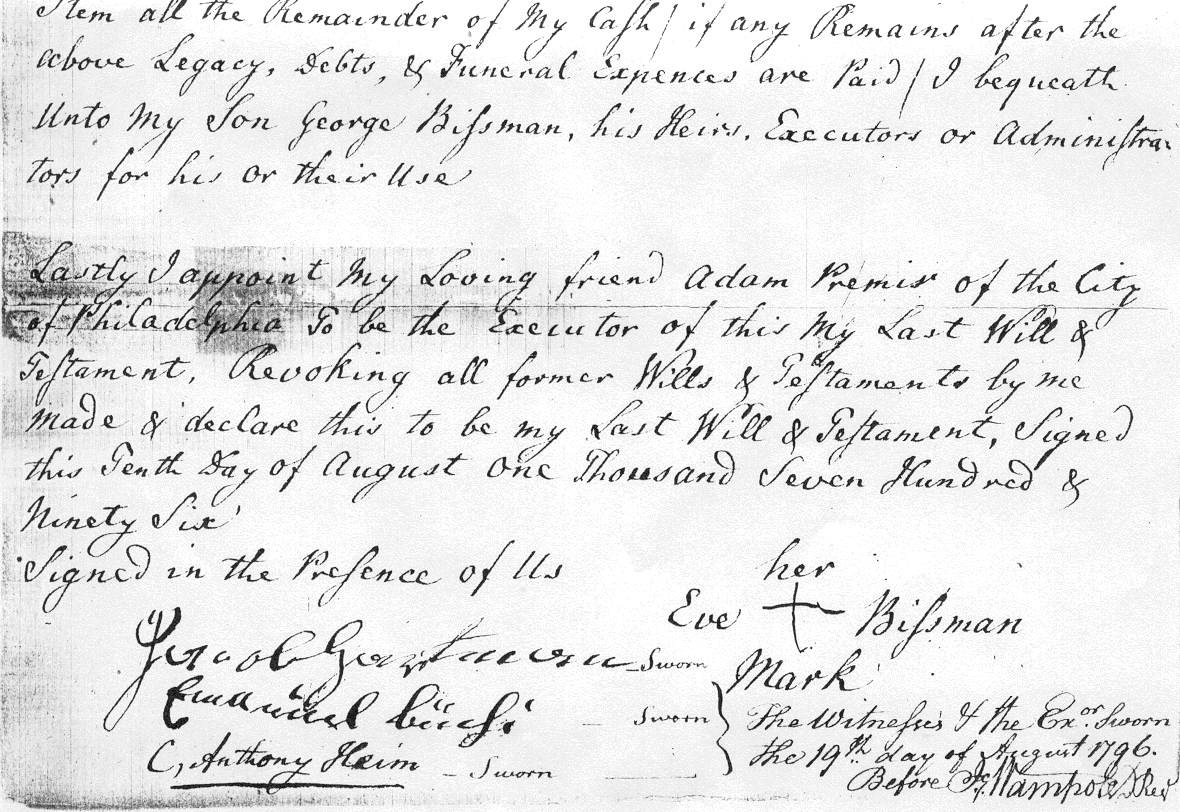 Item all the Remainder of My Cash / if any Remains after the
above Legacy, Debts, & Funeral Expences are Paid / I bequeath
Unto My Son George Bifsman, his Heirs, Executors or Administra-
tors for his or their Use
Lastly I appoint My Loving friend Adam Premir of the City
of Philadelphia To be the Executor of this My Last Will &
Testament, Revoking all former Wills & Testaments by me
made & declare this to be my Last Will & Testament, Signed
this Tenth Day of August One Thousand Seven Hundred &
Ninety Six
Signed in the Presence of Us
her
Eve + Bifsman
Mark
Jacob Hartman - Sworn
Emanuel - Sworn
C, Anthony Heim - Sworn
The Witnesses & the Exor. Sworn
the 19th day of August 1796.
Before Wampole DReg